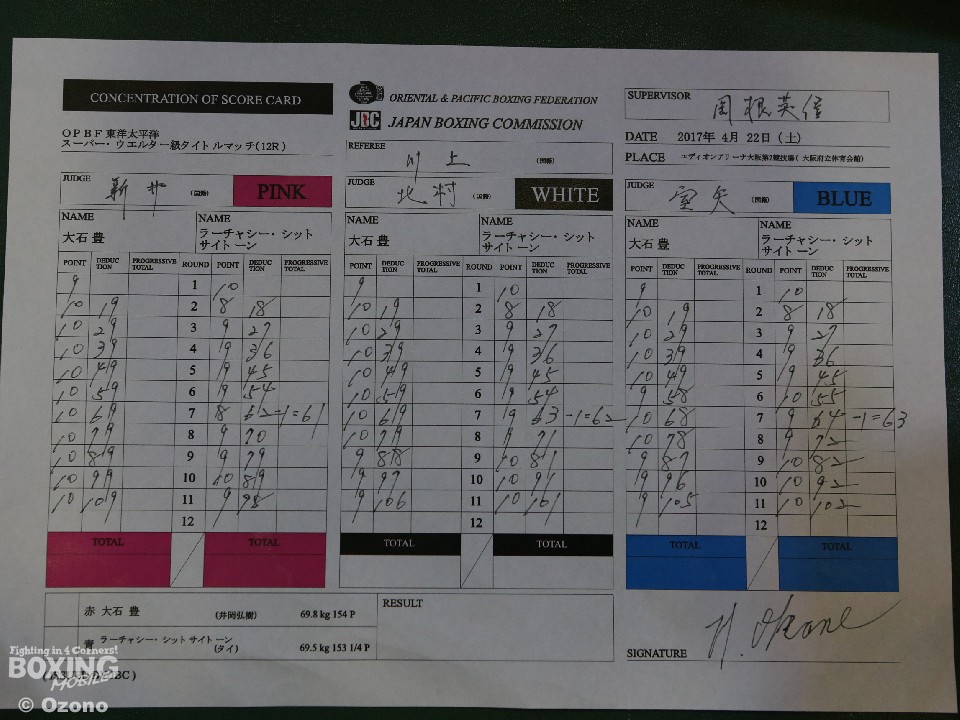 CONCENTRATION OF SCORE CARD
ORIENTAL & PACIFIC BOXING FEDERATION
JBC JAPAN BOXING COMMISSION
SUPERVISOR
OPBF東洋太平洋
スーパー・ウエルター級タイトルマッチ(12R)
DATE 2017年 4月 22日 (土)
REFEREE 川上 (国際)
PLACE エディオンアリーナ大阪第2競技場(大阪府立体育会館)
JUDGE 新井 (国際) PINK
JUDGE 北村 (国際) WHITE
JUDGE 室矢 (国際) BLUE
NAME NAME NAME NAME NAME NAME
大石 豊 ラーチャシー・シット サイトーン 大石 豊 ラーチャシー・シット サイトーン 大石 豊 ラーチャシー・シット サイトーン
POINT DEDUCTION PROGRESSIVE TOTAL ROUND POINT DEDUCTION PROGRESSIVE TOTAL POINT DEDUCTION PROGRESSIVE TOTAL ROUND POINT DEDUCTION PROGRESSIVE TOTAL POINT DEDUCTION PROGRESSIVE TOTAL ROUND POINT DEDUCTION PROGRESSIVE TOTAL
9 1 10 9 1 10 9 1 10
10 19 2 8 18 10 19 2 8 18 10 19 2 8 18
10 29 3 9 27 10 29 3 9 27 10 29 3 9 27
10 39 4 9 36 10 39 4 9 36 10 39 4 9 36
10 49 5 9 45 10 49 5 9 45 10 49 5 9 45
10 59 6 9 54 10 59 6 9 54 9 58 6 10 55
10 69 7 8 62-1=61 10 69 7 9 63-1=62 10 68 7 9 64-1=63
10 79 8 9 70 10 79 8 9 71 10 78 8 9 72
10 89 9 9 79 9 88 9 10 81 9 87 9 10 82
10 99 10 10 89 9 97 10 10 91 9 96 10 10 92
10 109 11 9 98 9 106 11 10 101 9 105 11 10 102
12 12 12
TOTAL TOTAL TOTAL TOTAL TOTAL TOTAL
赤 大石 豊 (井岡弘樹) 69.8 kg 154 P
RESULT
青 ラーチャシー・シット サイトーン (タイ) 69.5 kg 153 1/4 P
SIGNATURE
Fighting in 4 Corners!
BOXING
MOBILE
© Ozono